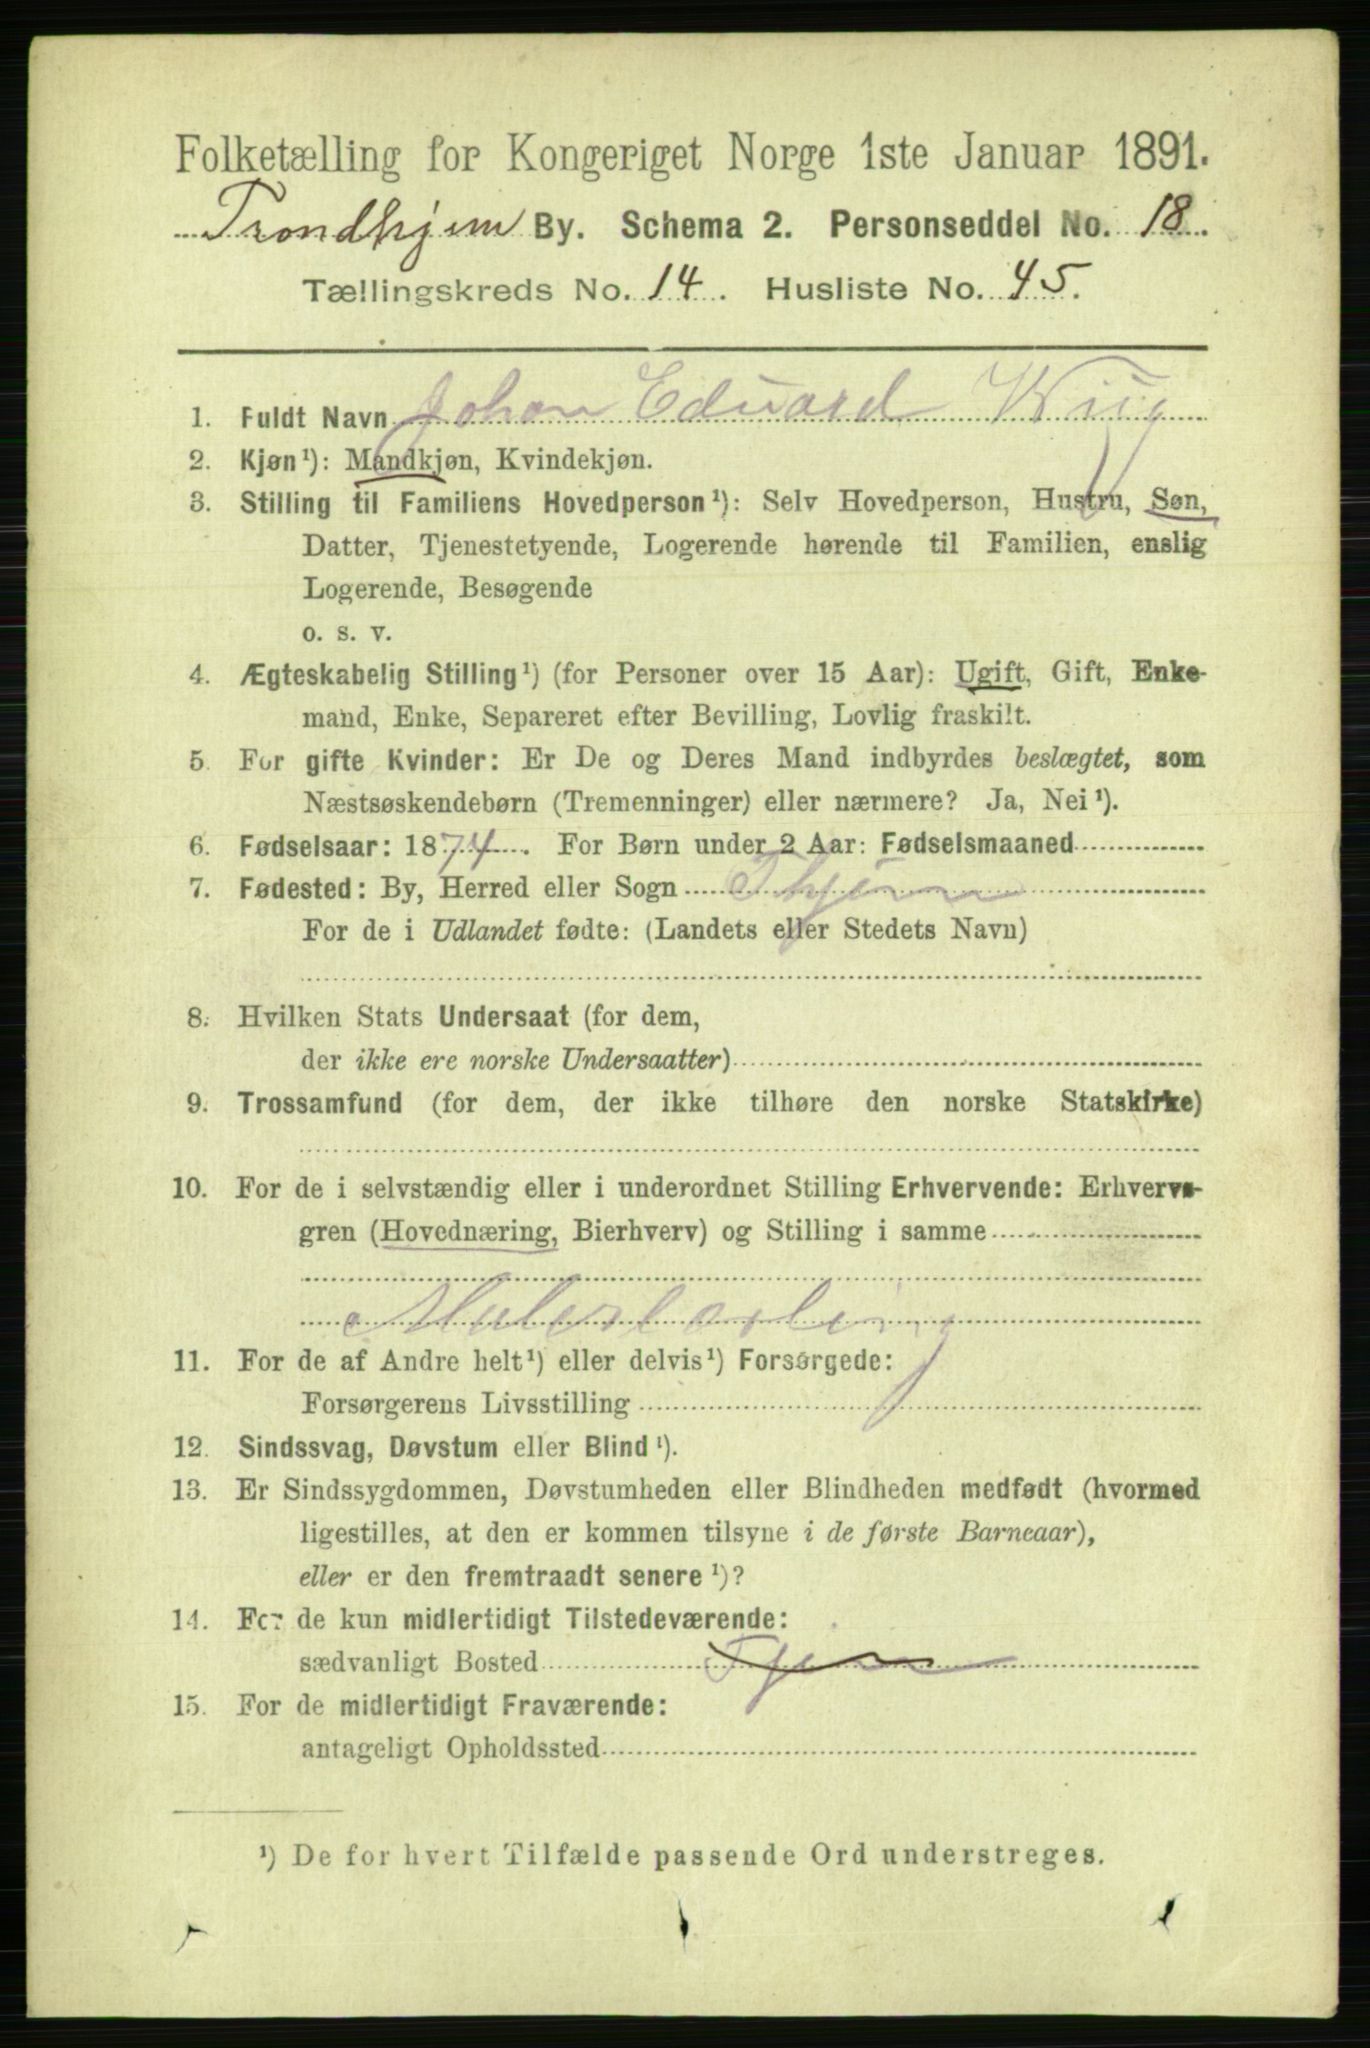 Folketælling for Kongeriget Norge 1ste Januar 1891.
Trondhjem By. Schema 2. Personseddel No. 18.
Tællingskreds No. 14. Husliste No. 45.
1. Fuldt Navn Johan Edvard Wiig
2. Kjøn ¹): Mandkjøn, Kvindekjøn.
3. Stilling til Familiens Hovedperson ¹): Selv Hovedperson, Hustru, Søn,
Datter, Tjenestetyende, Logerende hørende til Familien, enslig
Logerende, Besøgende
o. s. v.
4. Ægteskabelig Stilling ¹) (for Personer over 15 Aar): Ugift, Gift, Enke-
mand, Enke, Separeret efter Bevilling, Lovlig fraskilt.
5. For gifte Kvinder: Er De og Deres Mand indbyrdes beslægtet, som
Næstsøskendebørn (Tremenninger) eller nærmere? Ja, Nei ¹).
6. Fødselsaar: 1874. For Børn under 2 Aar: Fødselsmaaned
7. Fødested: By, Herred eller Sogn Thjem
For de i Udlandet fødte: (Landets eller Stedets Navn)
8. Hvilken Stats Undersaat (for dem,
der ikke ere norske Undersaatter)
9. Trossamfund (for dem, der ikke tilhøre den norske Statskirke)
10. For de i selvstændig eller i underordnet Stilling Erhvervende: Erhvervs-
gren (Hovednæring, Bierhverv) og Stilling i samme
Malerlærling
11. For de af Andre helt ¹) eller delvis ¹) Forsørgede:
Forsørgerens Livsstilling
12. Sindssvag, Døvstum eller Blind ¹).
13. Er Sindssygdommen, Døvstumheden eller Blindheden medfødt (hvormed
ligestilles, at den er kommen tilsyne i de første Barneaar),
eller er den fremtraadt senere ¹)?
14. For de kun midlertidigt Tilstedeværende:
sædvanligt Bosted Tjem
15. For de midlertidigt Fraværende:
antageligt Opholdssted
¹) De for hvert Tilfælde passende Ord understreges.